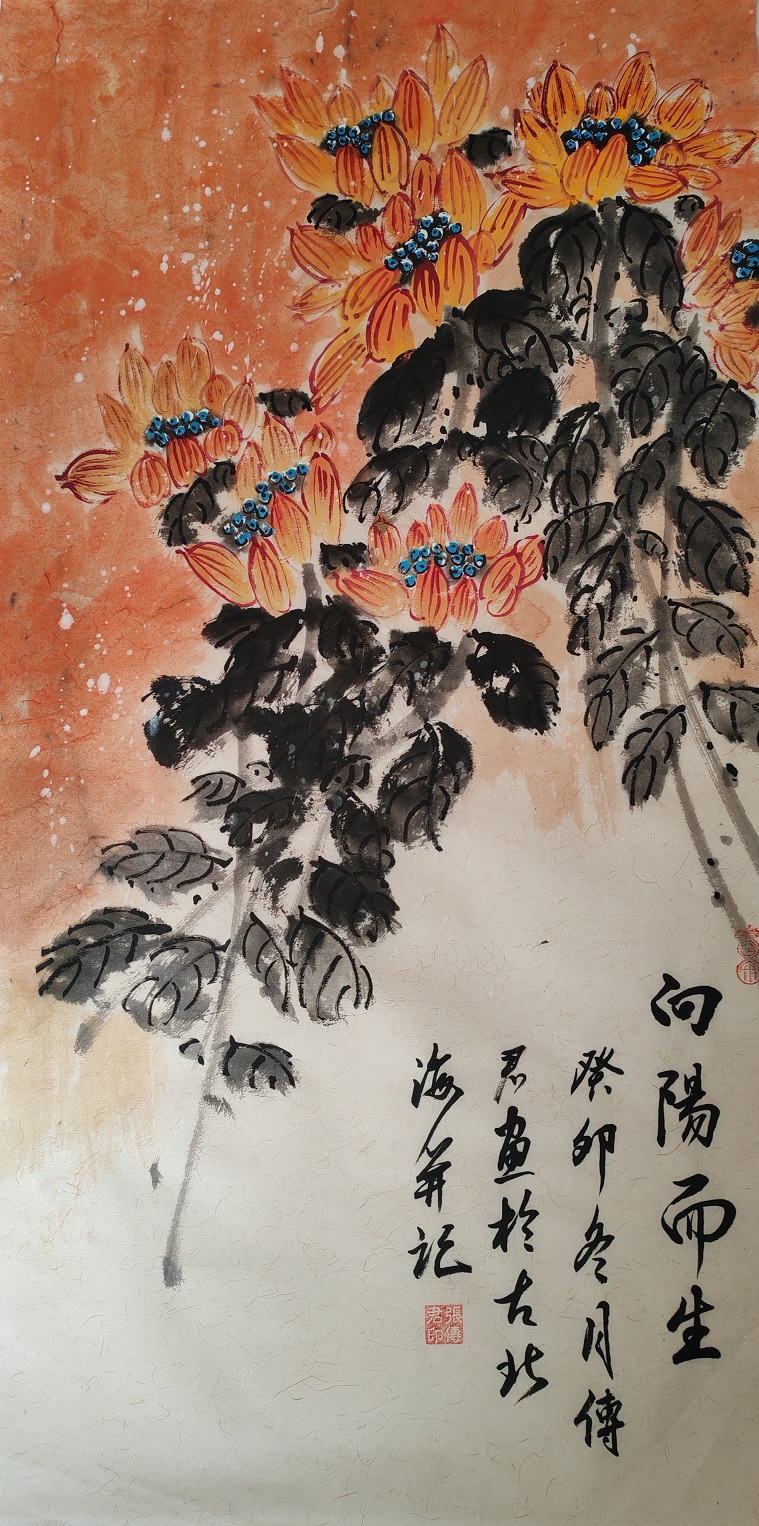 向陽而生
癸卯冬月傳
君畫於古北
海并记
張傳
君印